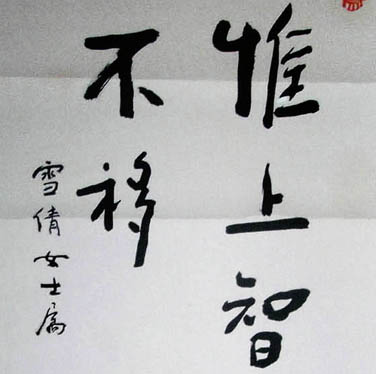 惟上智
不移
雪倩女士属